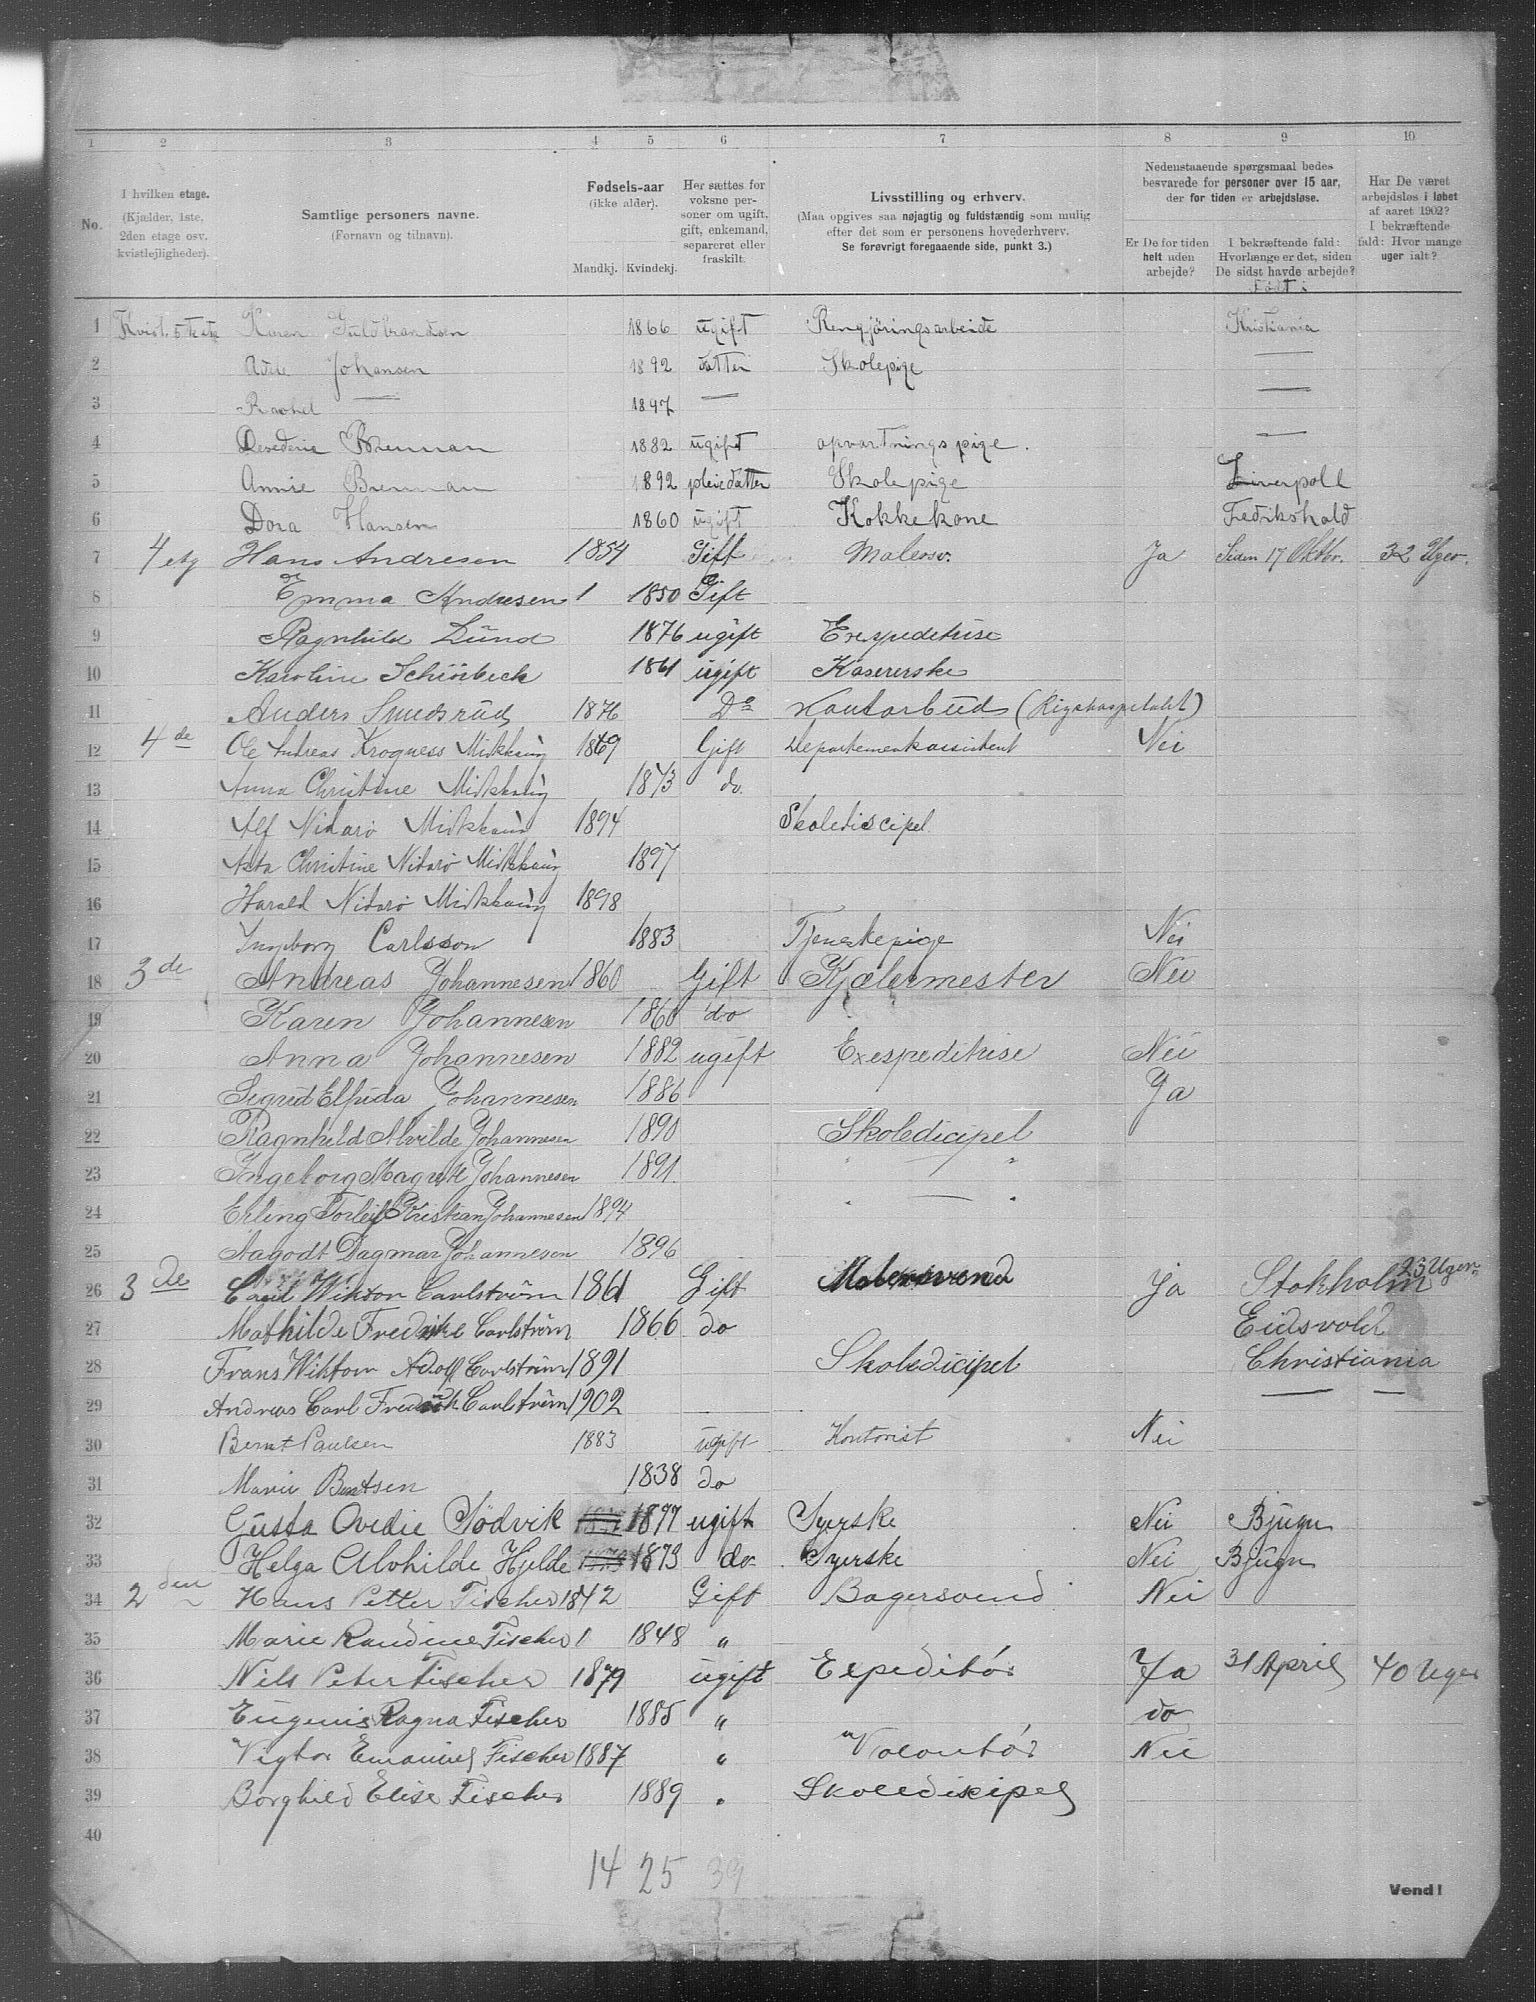 1 2 3 4 5 6 7 8 9 10
No.
I hvilken etage. (Kjælder, 1ste, 2den etage osv. kvistlejligheder).
Samtlige personers navne. (Fornavn og tilnavn).
Fødsels-aar (ikke alder). Mandkj. Kvindekj.
Her sættes for voksne personer om ugift, gift, enkemand, separeret eller fraskilt.
Livsstilling og erhverv. (Maa opgives saa nøjagtig og fuldstændig som mulig efter det som er personens hovederhverv. Se forøvrigt foregaaende side, punkt 3.)
Nedenstaaende spørgsmaal bedes besvarede for personer over 15 aar, der for tiden er arbejdsløse.
Er De for tiden helt uden arbejde?
I bekræftende fald: Hvorlænge er det, siden De sidst havde arbejde?
Født i
Har De været arbejdsløs i løbet af aaret 1902? I bekræftende fald: Hvor mange uger ialt?
1 Kvist 5te etg Karen Guldbrandsen 1866 ugift Rengjøringsarbeide Kristiania
2 Johansen 1892 datter Skolepige —
3 Rachel — 1897 — —
4 Brennan 1882 ugift opvartningspige. —
5 Annie Brennan 1892 pleiedatter Skolepige Liverpoll
6 Dora Hansen 1860 ugift Kokkekone Fedrikshald
7 4 etg Hans Andresen 1854 Gift Malersv. Ja Siden 17 Oktbr. 32 Uger.
8 Emma Andresen 1 1850 Gift
9 Ragnhild Lund 1876 ugift Exspeditrise
10 Karoline Schiörbeck 1861 ugift Kasererske
11 Anders Smedsrud 1876 Do Kontorbud (Rigshospitalet)
12 4de Ole Andreas Krogness Midthaug 1869 Gift Departementsassistent Nei
13 Anna Christine Midthaug 1873 do.
14 Alf Nidarø Midthaug 1894 Skolediscipel
15 Asta Christine Nidarø Midthaug 1897
16 Harald Nidarø Midthaug 1898
17 Ingeborg Carlsson 1883 Tjenestepige Nei
18 3de Andreas Johannesen 1860 Gift Kjælermester Nei
19 Karen Johannesen 1860 do
20 Anna Johannesen 1882 ugift Exespeditrise Nei
21 Sigrid Elfrida Johannesen 1886 Ja
22 Ragnhild Alvilde Johannesen 1890 Skoledicipel
23 Ingeborg Magrete Johannesen 1891 " — "
24 Erling Torleif Kristian Johannesen 1894 " — "
25 Aagodt Dagmar Johannesen 1896
26 3de Carl Wiktor Carlström 1861 Gift Malersvend Ja Stokholm 23 Uger
27 Mathilde Fredrike Carlström 1866 do Eidsvold
28 Frans Wiktor Adolf Carlström 1891 Skoledicipel Christiania
29 Andreas Carl Fredrik Carlström 1902 — —
30 Bernt Paulsen 1883 ugift Kontorist Nei
31 Marie Berntsen 1838 do
32 Gusta Ovedie Södvik 1877 ugift Syerske Nei Bjugn
33 Helga Alvhilde Hjelde 1873 do Syerske Nei Bjugn
34 2den Hans Petter Fischer 1842 Gift Bagersvend Nei
35 Marie Randine Fischer 1 1848 "
36 Nils Peter Fischer 1879 ugift Expeditör Ja 31 April 40 Uger
37 Eugenie Ragna Fischer 1885 " do
38 Vigtor Emanuel Fischer 1887 " Volontör Nei
39 Borghild Elise Fischer 1889 " Skoledicipel
40
14 25 39
Vend!